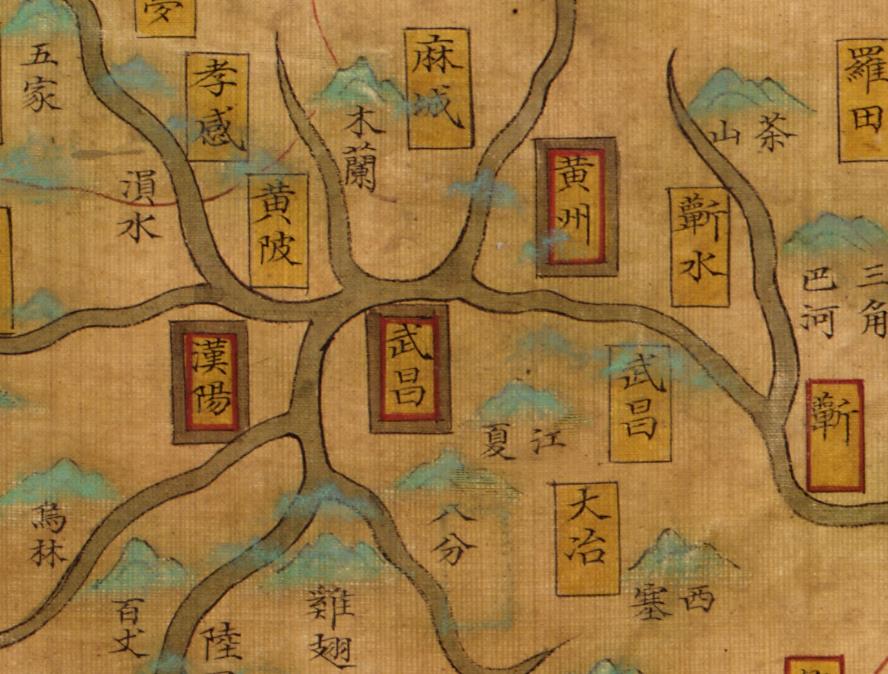 五家
孝感
麻城
木蘭
羅田
山茶
溳水
黄陂
黄州
蘄水
巴河
三角
漢陽
武昌
武昌
蘄
夏江
大冶
八分
烏林
塞西
百丈
陸
雞翅